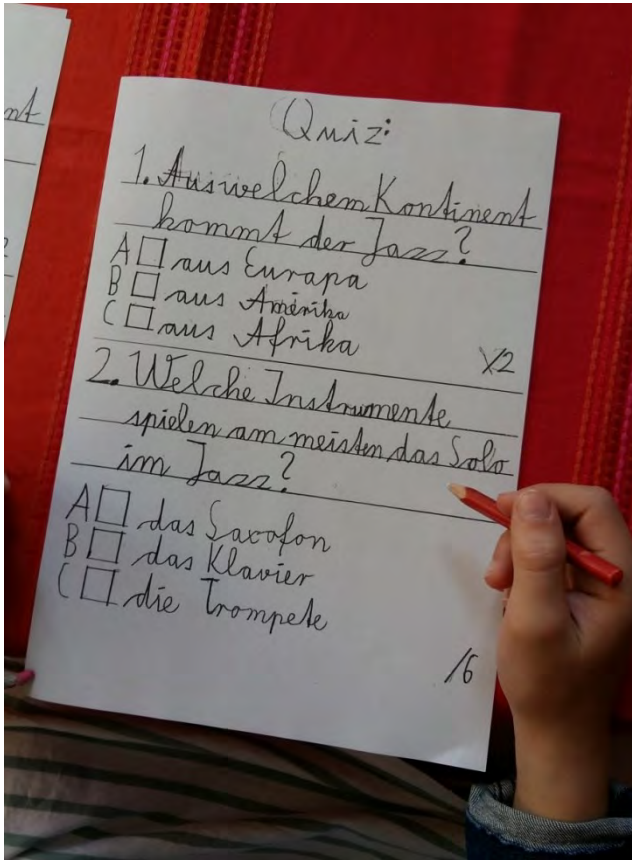 nt
Quiz:
1. Aus welchem Kontinent
kommt der Jazz?
A □ aus Europa
B □ aus Amerika
C □ aus Afrika
X2
2. Welche Instrumente
spielen am meisten das Solo
im Jazz?
A □ das Saxofon
B □ das Klavier
C □ die Trompete
/6